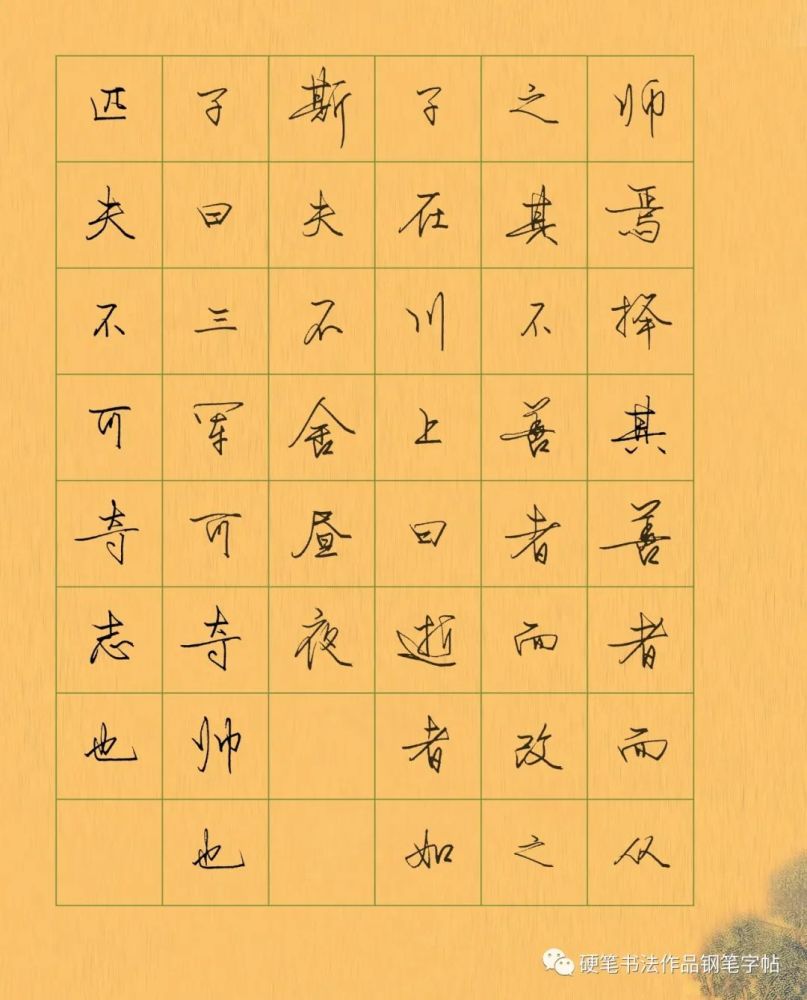 师焉择其善者而从
之其不善者而改之
子在川上曰逝者如
斯夫不舍昼夜
子曰三军可夺帅也
匹夫不可夺志也
硬笔书法作品钢笔字帖